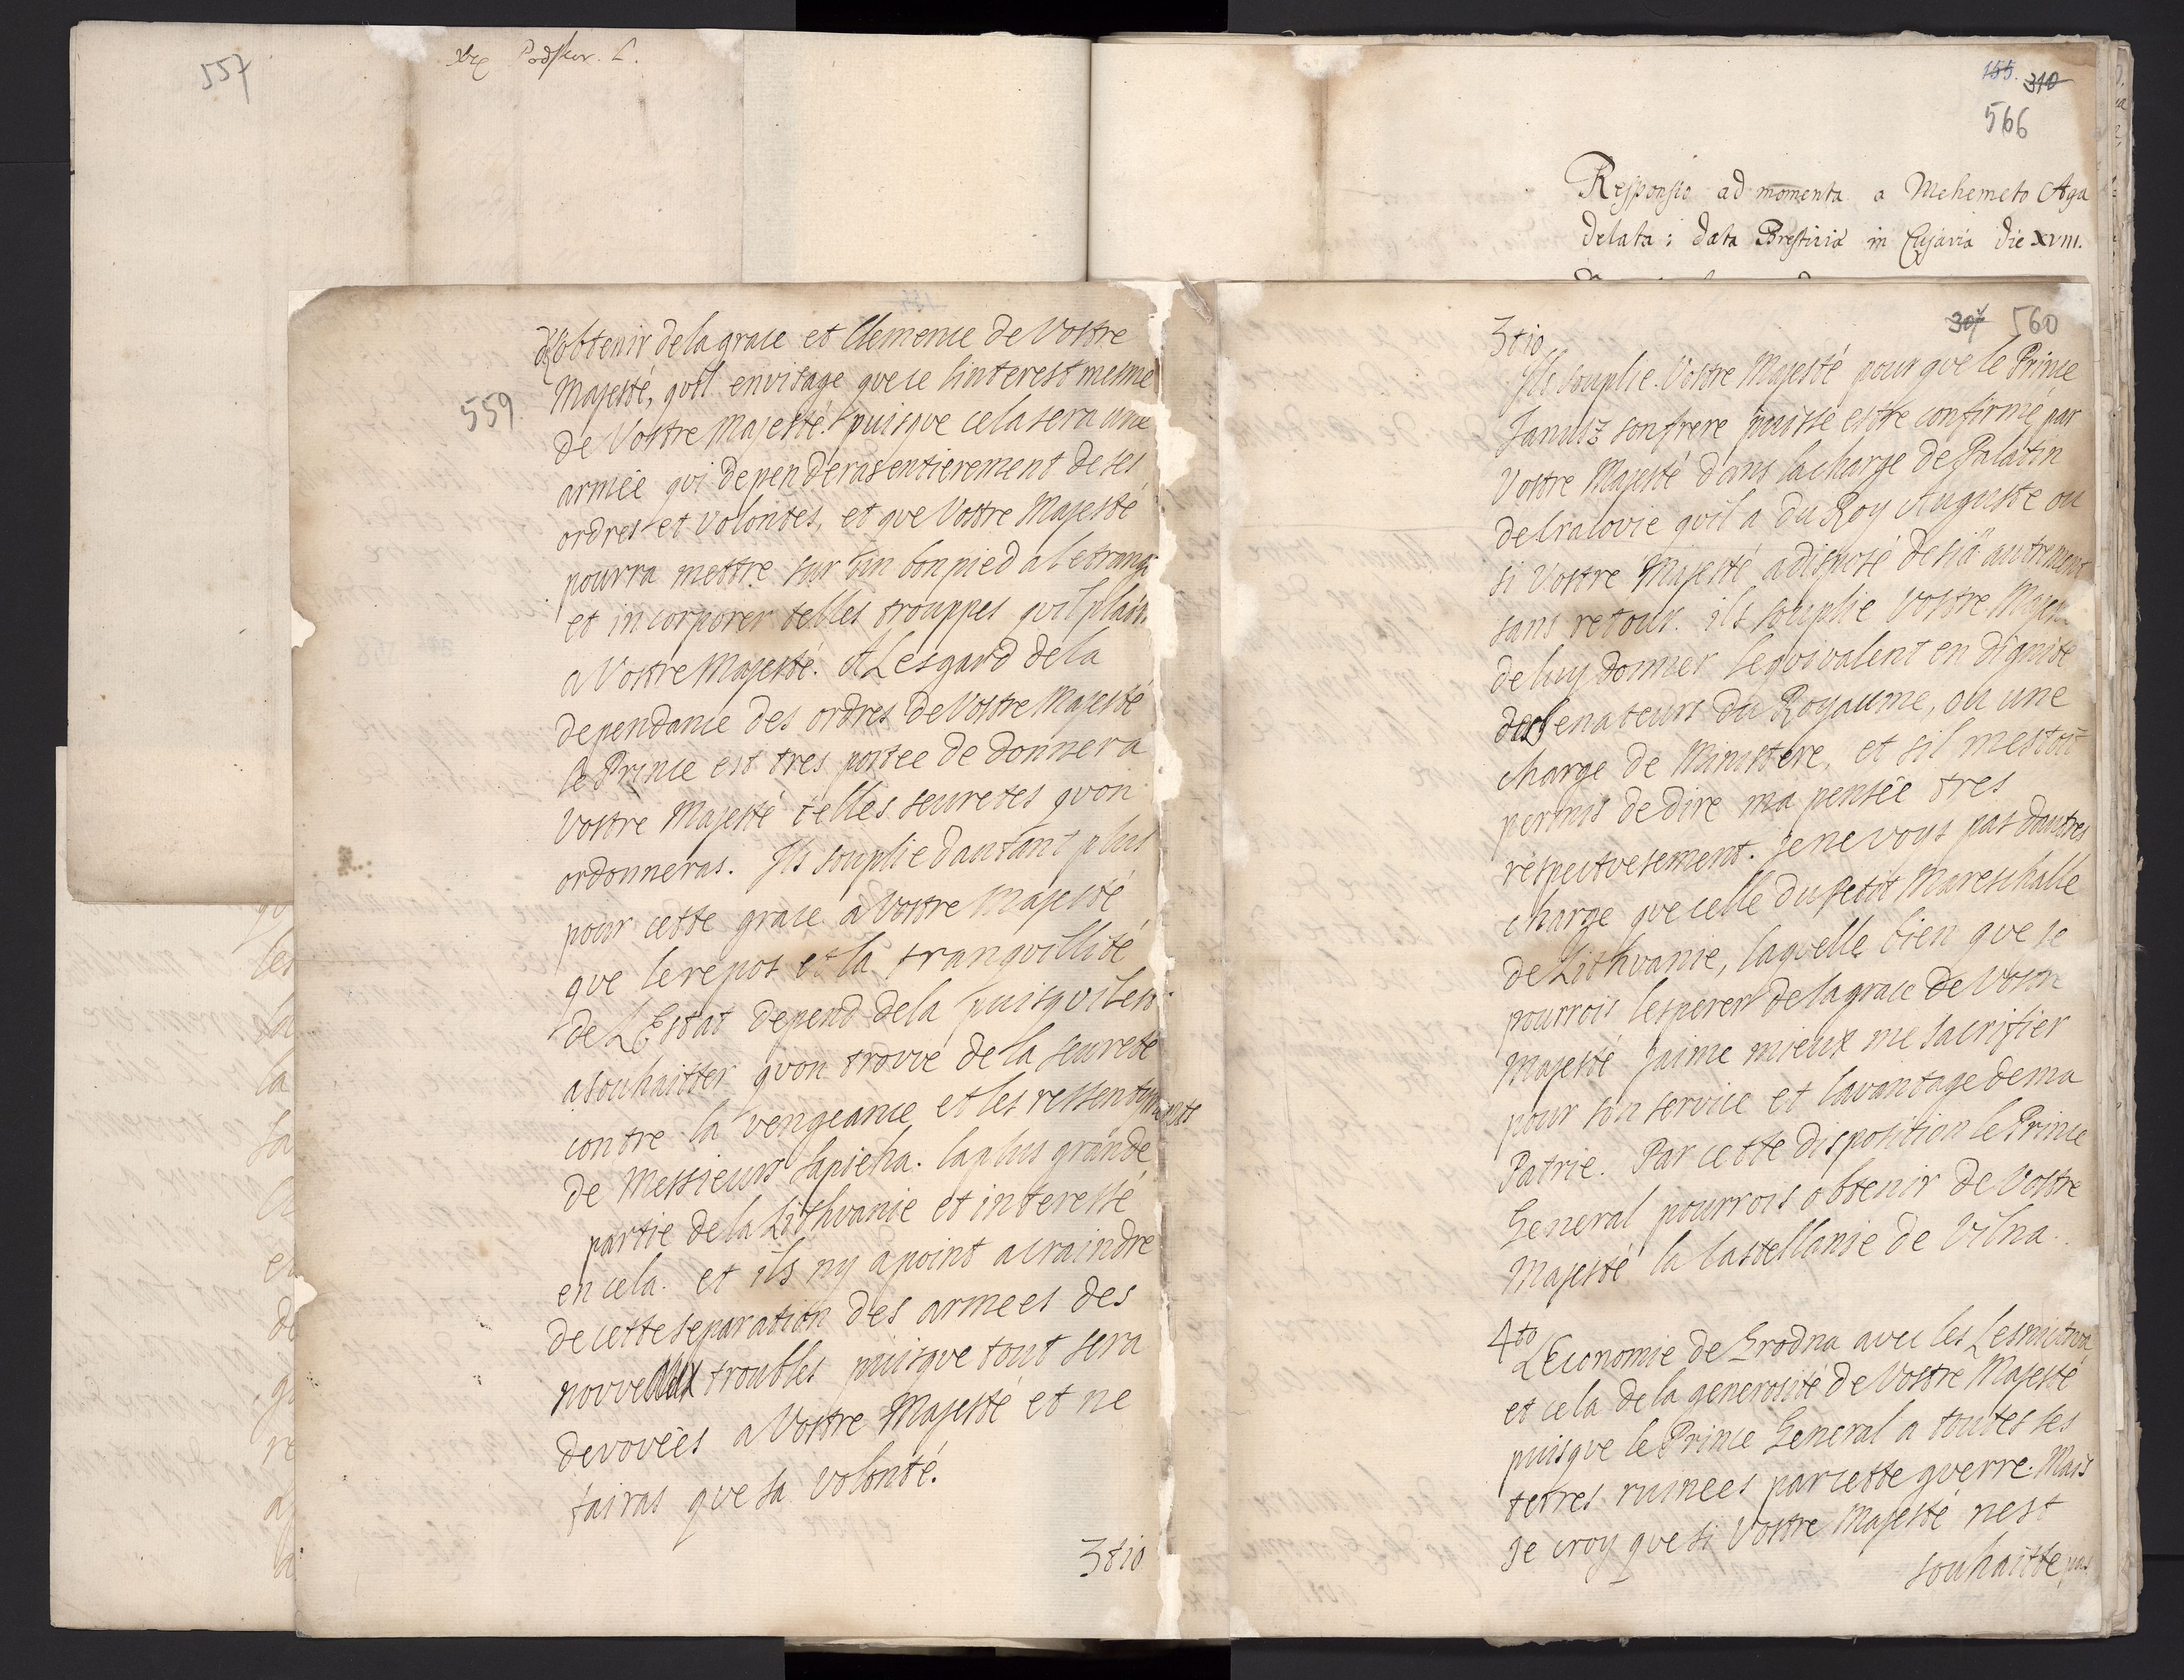 557
Podskar. L.
155. 310
566
Responsio ad momenta a Mehemeto Aga
delata: data Bresticiae in Cujavia die XVIII.
559
d'obtenir de la grace et Clemence de Vostre
Majesté, qvil envisage qve ce linterest mesme
de Vostre Majesté puisqve cela sera une
armée qvi dependeras entierement de ses
ordres et volontes, et qve Vostre Majesté
pourra mettre sur un bon pied a letrang
et incorporer telles trouppes qvil plair.
a Vostre Majesté. A Lesgard de la
dependance des ordres de Vostre Majesté
le Prince est tres portee de donner a
Vostre Majesté telles seuretes qvon
ordonneras. Ils souplie dautant plus
pour cette grace a Vostre Majesté
qve le repos et la tranqvillité
de LEstat depend dela puisqvil est
a souhaitter qvon trouve de la seureté
contre la vengeance et les ressentiments
de Messieurs Sapieha. la plus grande
partie de la Lithvanie et interessé
en cela. et ils ny a point a craindre
de cette separation des armees des
nouveaux troubles puisqve tout sera
devovées a Vostre Majesté et ne
fairas qve sa volonté.
3tio
307 560
3tio
Ils souplie Vostre Majesté pour qve le Prince
Janusz son frere puisse estre confirmé par
Vostre Majesté dans la charge de Palatin
de Cracovie qvil a du Roy Auguste ou
si Vostre Majesté a disposé desia autrement
sans retour. ils souplie Vostre Majest
de luy donner leqvivalent en dignité
des Senateurs du Royaume, ou une
charge de Ministere, et sil mestoit
permis de dire ma pensée tres
respectvesement. Je ne voys pas dautres
charge qve celle du petit Mareschalle
de Lithvanie, laqvelle bien qve je
pourrois lesperer de la grace de Vostre
Majesté jaime mieux me sacrifier
pour son service et lavantage de ma
Patrie. Par cette disposition le Prince
General pourrois obtenir de Vostre
Majesté la Castellanie de Vilna.
4to
LEconomie de Grodna avec les Lesnictwa
et cela de la generosité de Vostre Majesté
puisqve le Prince General a toutes ses
terres ruinees par cette gverre. Mais
Je croy qve si Vostre Majesté nest
souhaitte pas